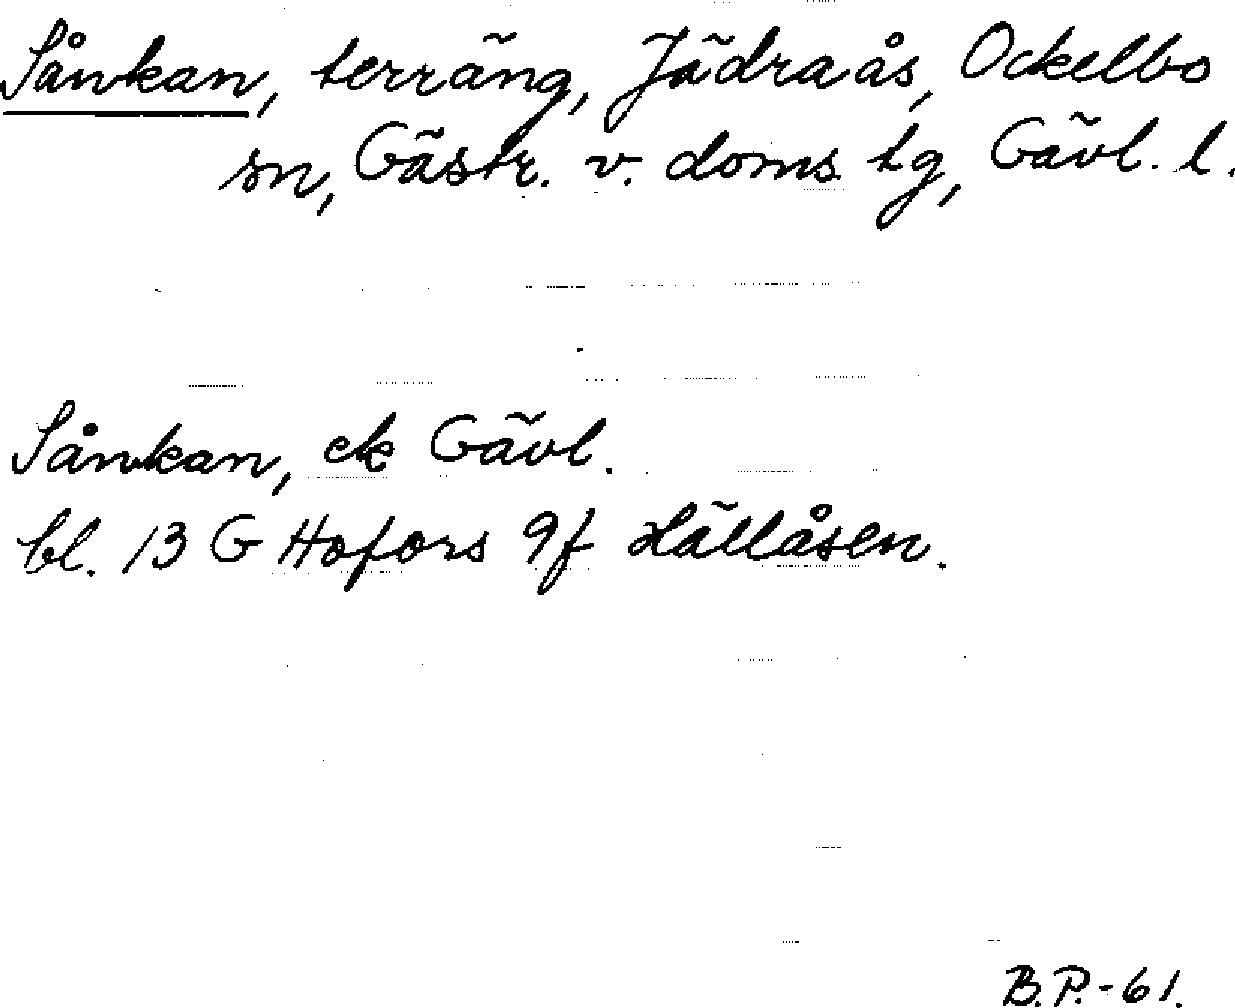 Sånkan, terräng, Jädraås, Ockelbo
sn, Gästr. v. doms tg, Gävl. l.
Sånkan, ek Gävl.
bl. 13 G Hofors 9f Hällåsen.
B.P.-61.